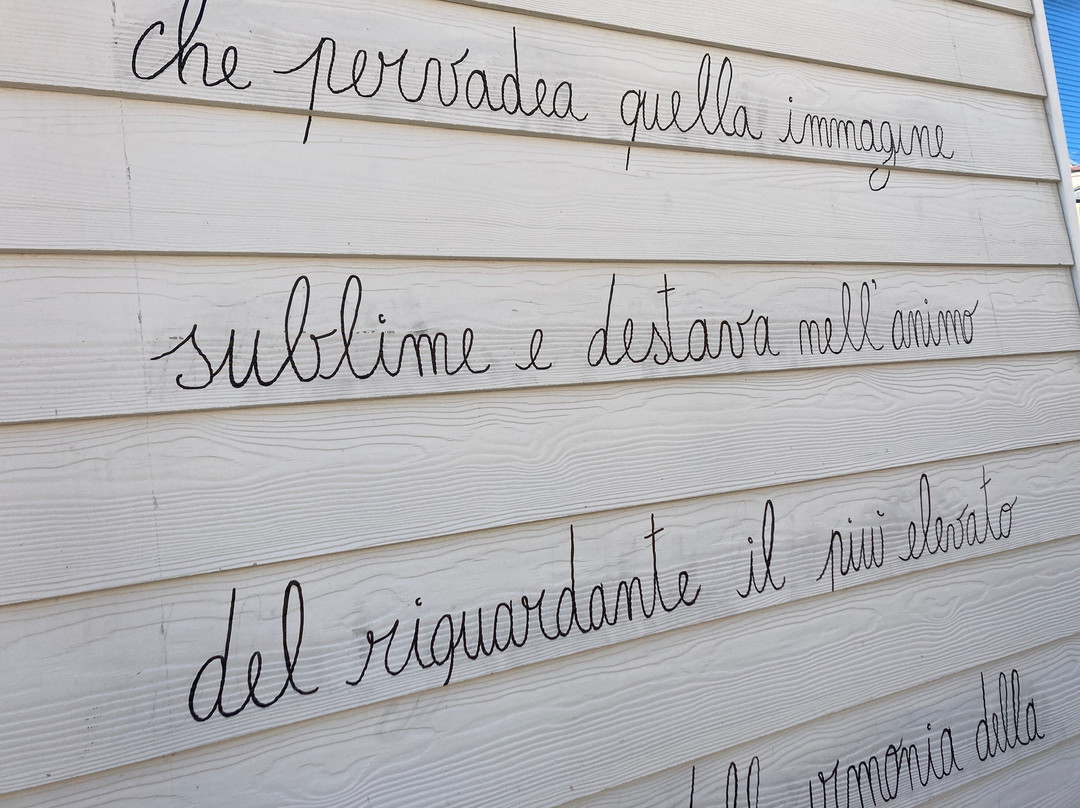 che pervadea quella immagine
sublime e destava nell'animo
del riguardante il più elevato
armonia della